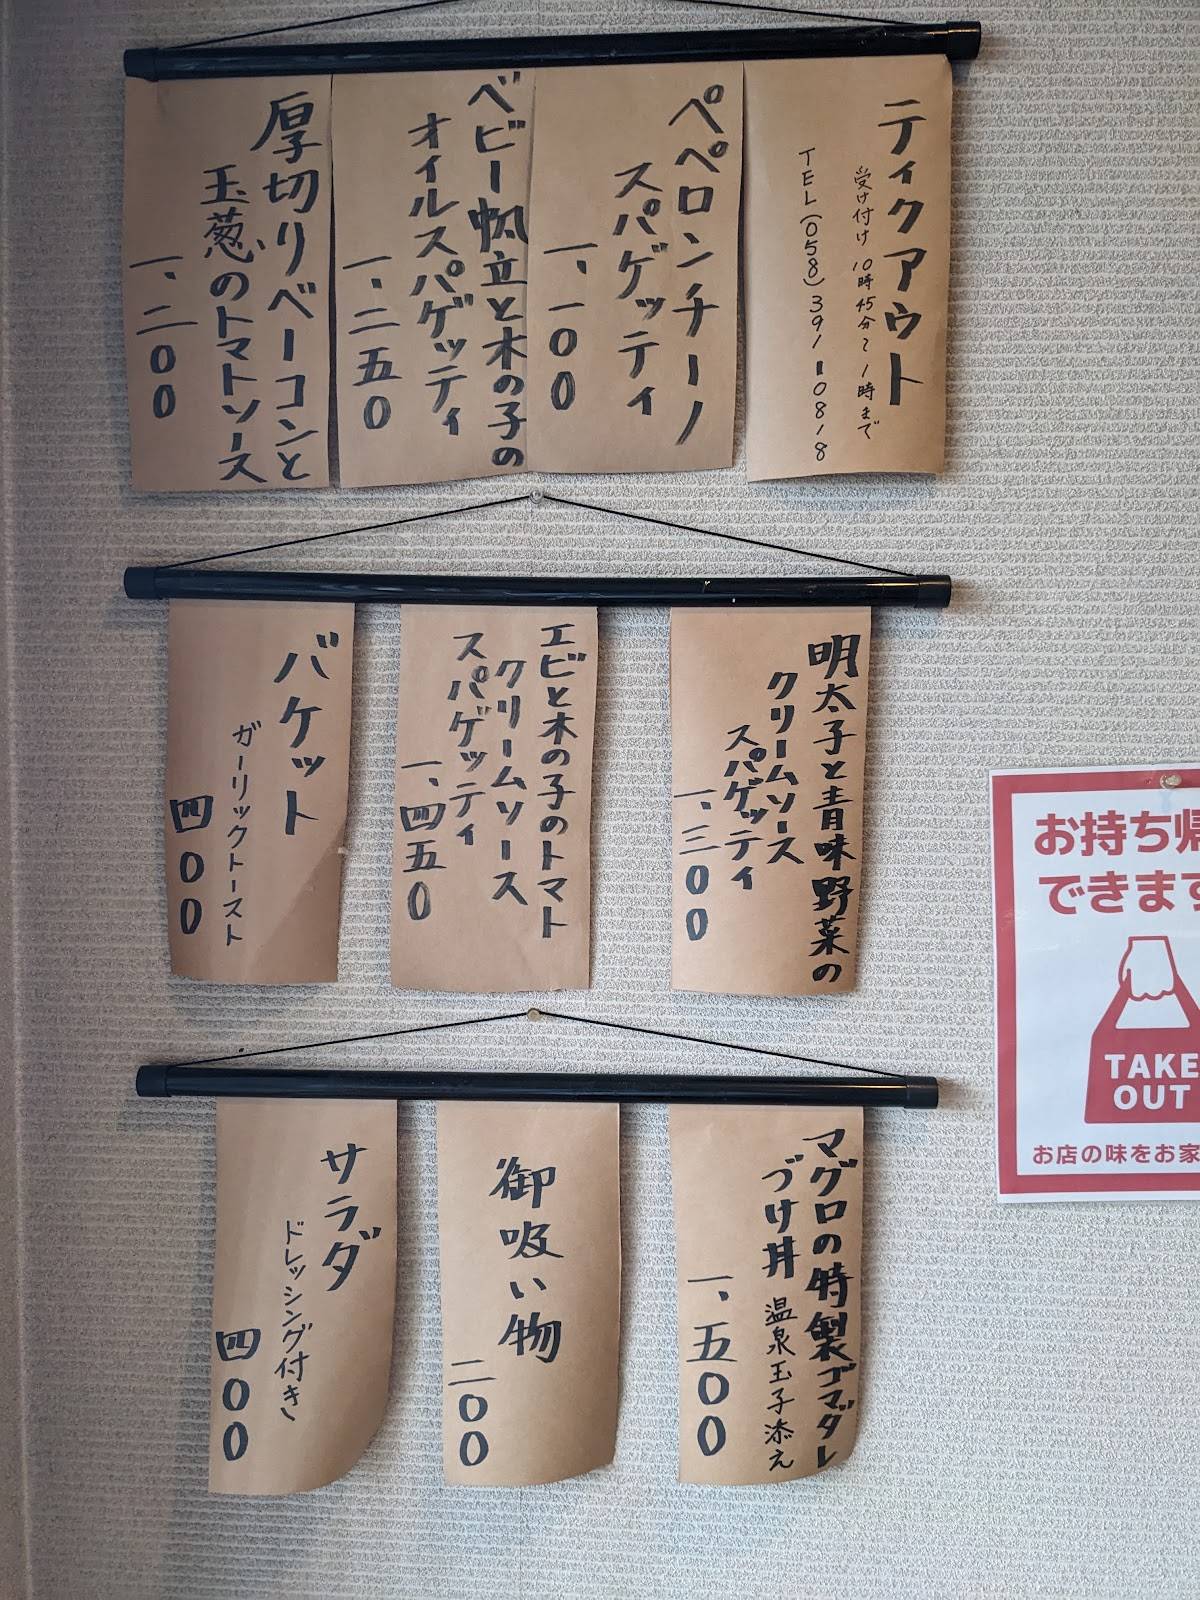 ティクアウト
受け付け 10時45分~1時まで
TEL(058)391-0818
ペペロンチーノ
スパゲッティ
一、一00
ベビー帆立と木の子の
オイルスパゲッティ
一、二五0
厚切りベーコンと
玉葱のトマトソース
一、二00
明太子と青味野菜の
クリームソース
スパゲッティ
一、三00
エビと木の子のトマト
クリームソース
スパゲッティ
一、四五0
バケット
ガーリックトースト
四00
マグロの特製ゴマダレ
づけ丼 温泉玉子添え
一、五00
御吸い物
二00
サラダ
ドレッシング付き
四00
お持ち帰
できます
TAKE
OUT
お店の味をお家